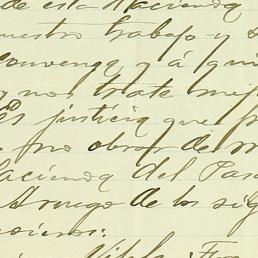 de esta Hacienda
nuestro trabajo y s
convenga y á qui
y nos trate mej
Es justicia que p
no obrar de m
Hacienda del Pas
Arroyo de los sig